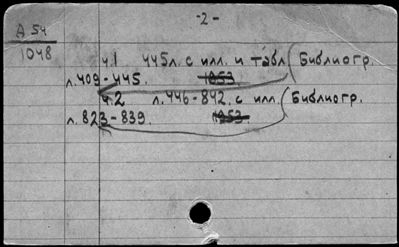 -2-
А 54
1048
ч.1 445л. с илл. и табл (Библиогр.
л. 409-445. 1953
ч.2 л. 446-842. с илл. (Библиогр.
л. 823-839. 1953.